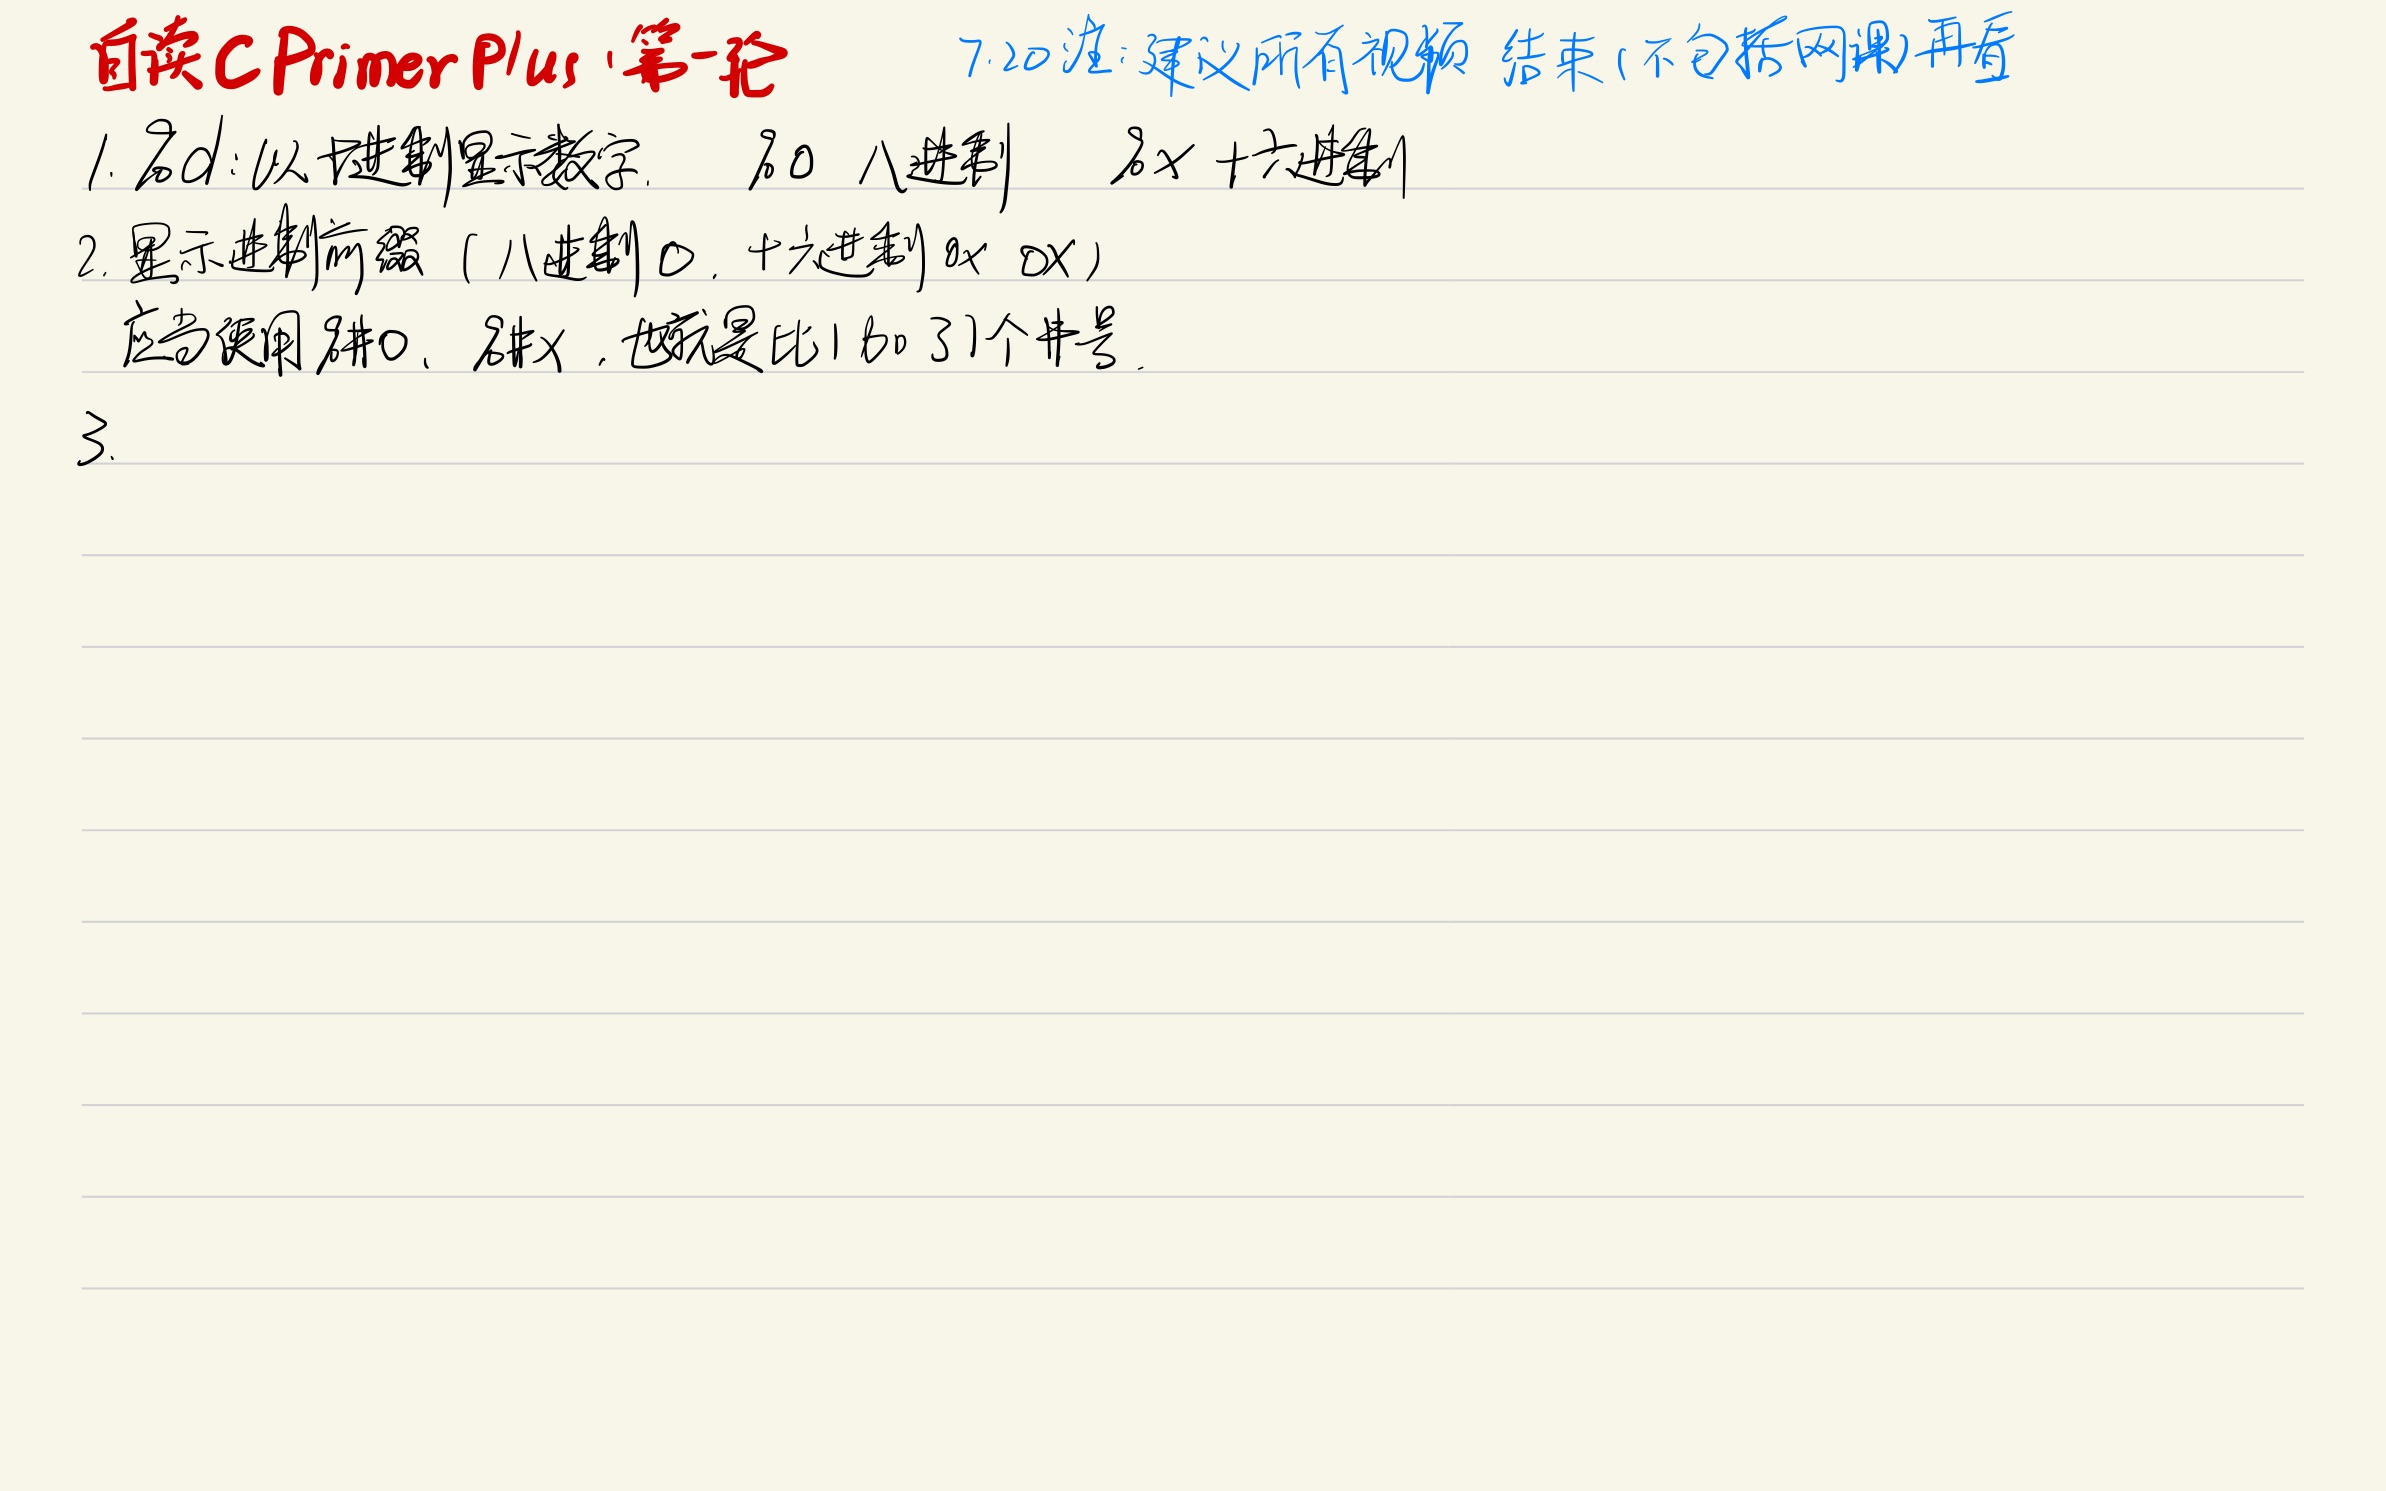 自读C Primer Plus,第一轮
7.20注:建议所有视频 结束(不包括网课)再看
1.%d:以十进制显示数字. %o 八进制 %x 十六进制
2.显示进制前缀(八进制0,十六进制0x 0X)
应当使用%#o、%#x,也就是比1
个井号.
3.